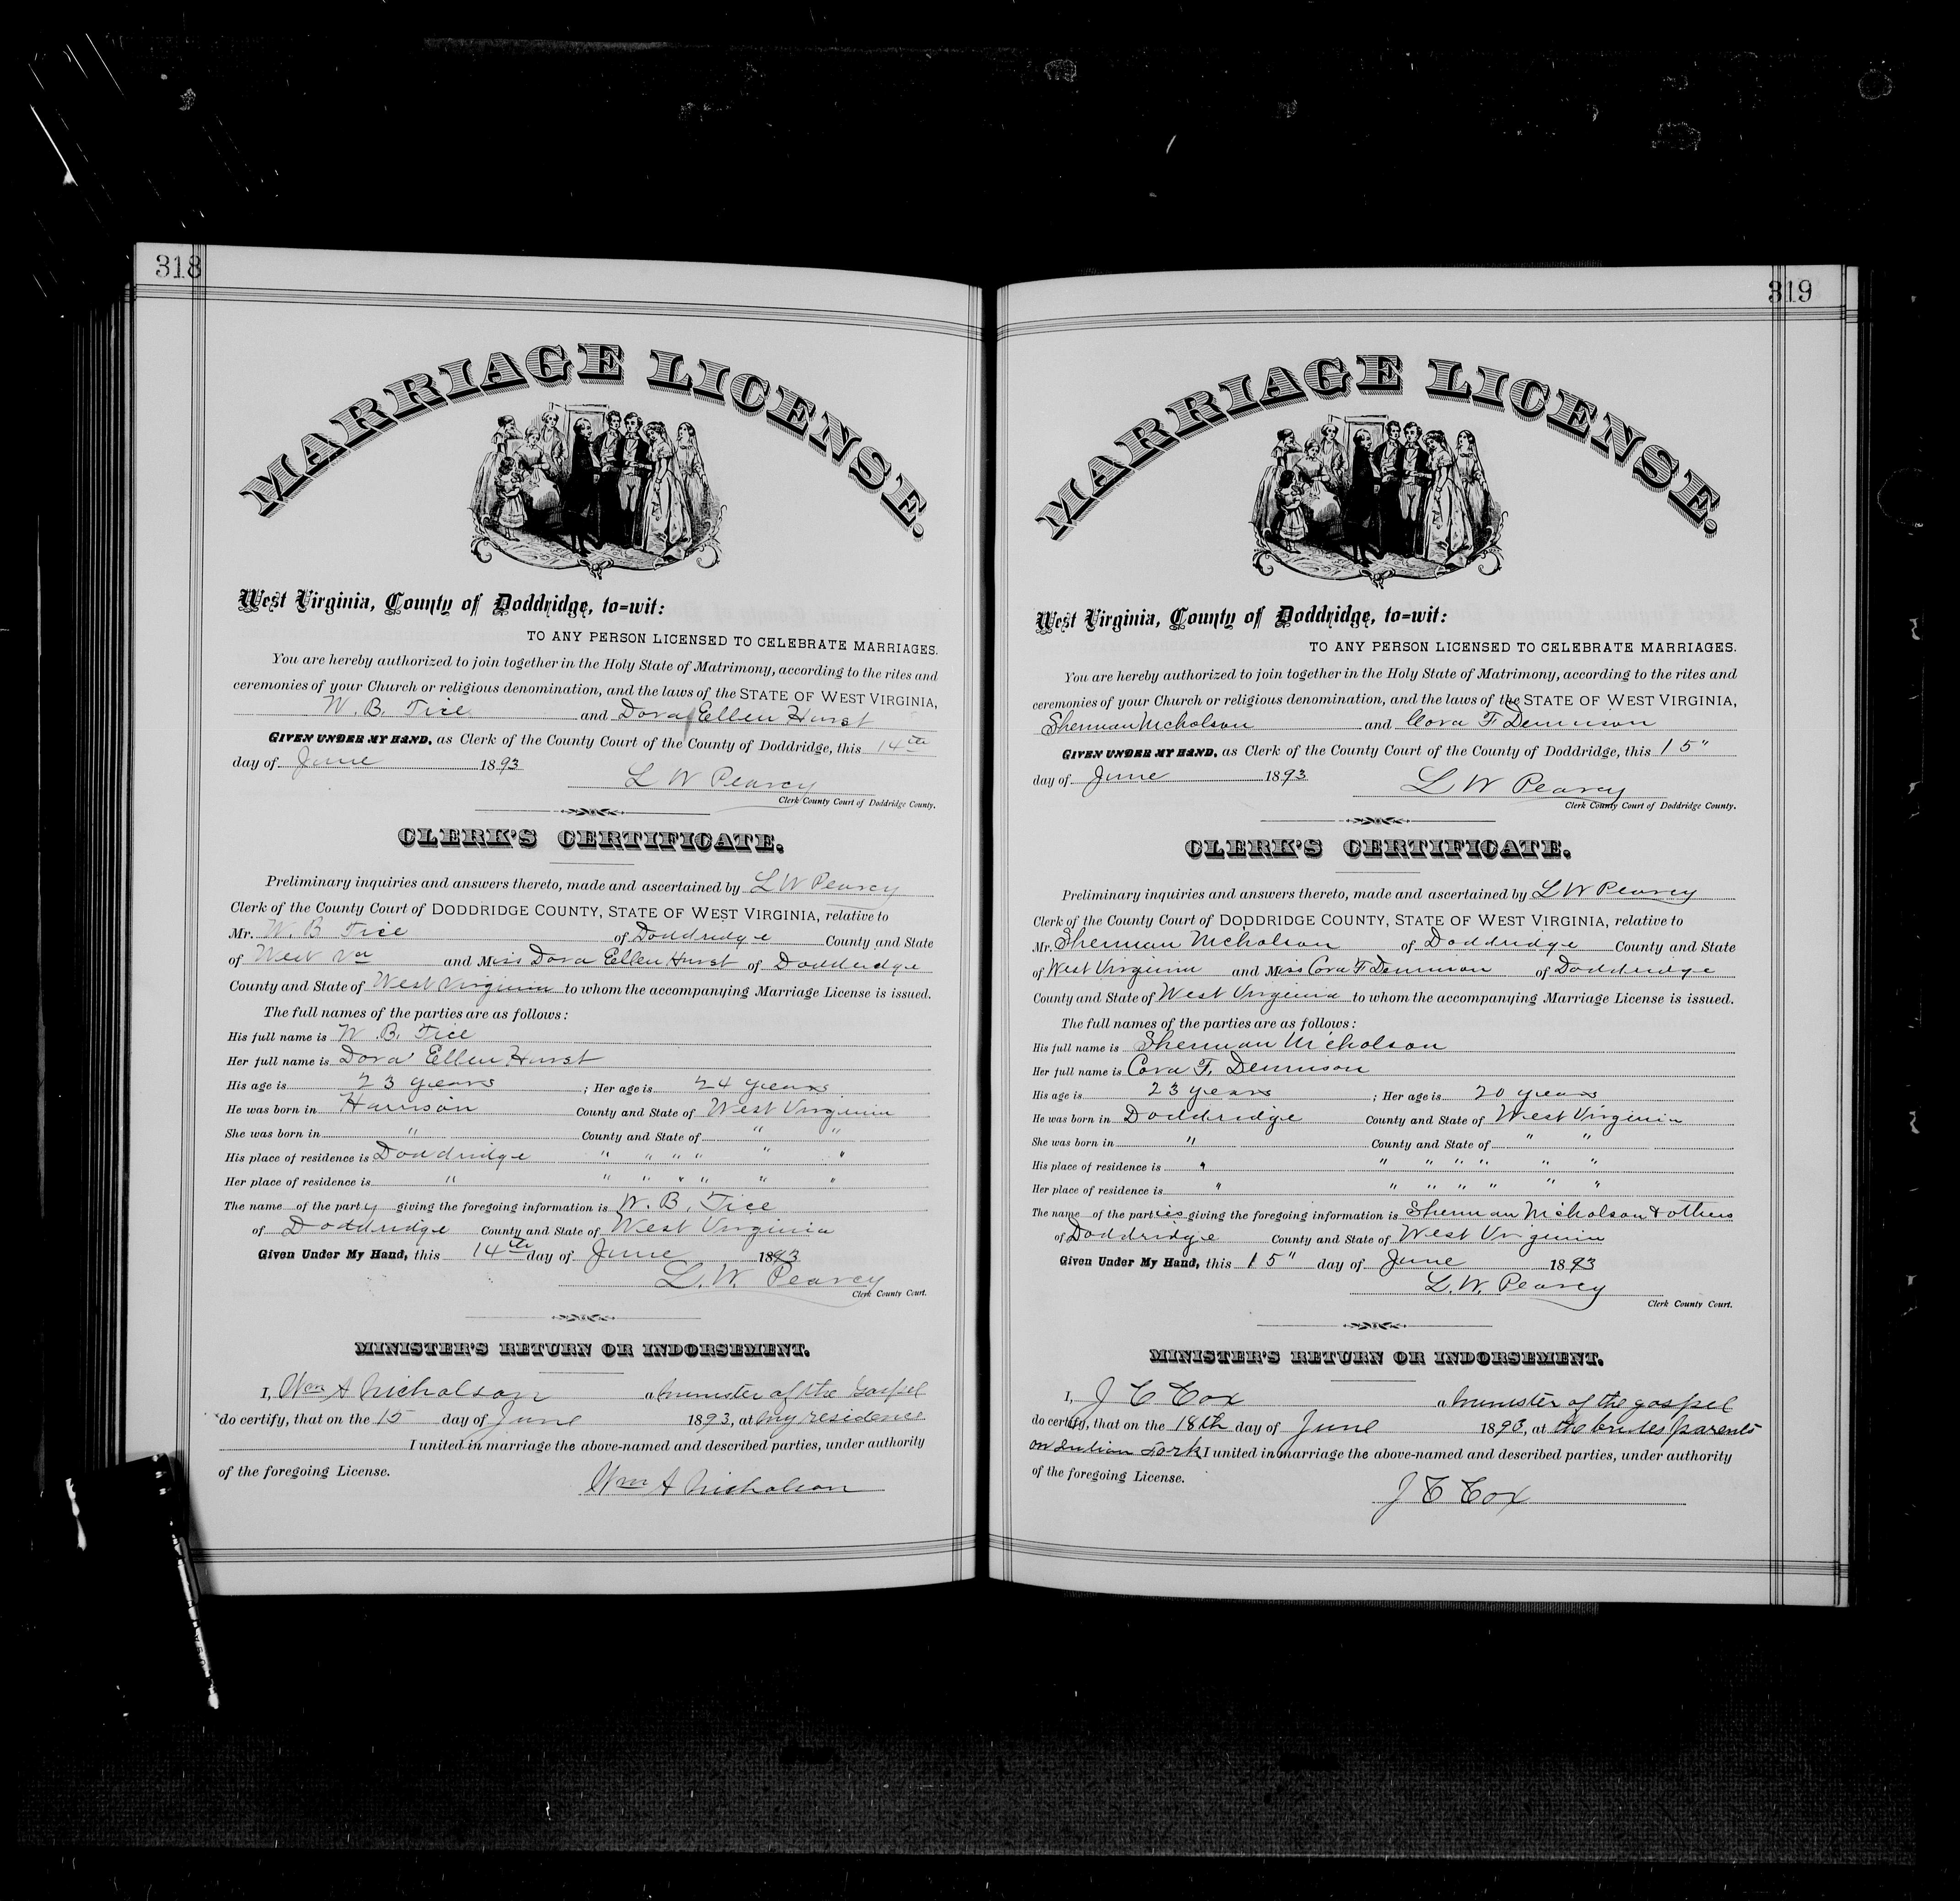 318
MARRIAGE LICENSE.
West Virginia, County of Doddridge, to=wit:
TO ANY PERSON LICENSED TO CELEBRATE MARRIAGES.
You are hereby authorized to join together in the Holy State of Matrimony, according to the rites and
ceremonies of your Church or religious denomination, and the laws of the STATE OF WEST VIRGINIA,
W. B. Tice and Dora Ellen Hurst
GIVEN UNDER MY HAND, as Clerk of the County Court of the County of Doddridge, this 14th
day of June 1893
L W Pearcy
Clerk County Court of Doddridge County.
CLERK'S CERTIFICATE.
Preliminary inquiries and answers thereto, made and ascertained by L W Pearcy
Clerk of the County Court of DODDRIDGE COUNTY, STATE OF WEST VIRGINIA, relative to
Mr. W. B Tice of Doddridge County and State
of West Va and Miss Dora Ellen Hurst of Doddridge
County and State of West Virginia to whom the accompanying Marriage License is issued.
The full names of the parties are as follows:
His full name is W. B. Tice
Her full name is Dora Ellen Hurst
His age is 23 years ; Her age is 24 years
He was born in Harrison County and State of West Virginia
She was born in " County and State of " "
His place of residence is Doddridge " " " " " "
Her place of residence is " " " " " " "
The name of the party giving the foregoing information is W. B. Tice
of Doddridge County and State of West Virginia
Given Under My Hand, this 14th day of June 1893
L. W. Pearcy
Clerk County Court.
MINISTER'S RETURN OR INDORSEMENT.
I, Wm A Nicholson a minister of the Gospel
do certify, that on the 15 day of June 1893, at my residence
I united in marriage the above-named and described parties, under authority
of the foregoing License.
Wm A Nicholson
319
MARRIAGE LICENSE.
West Virginia, County of Doddridge, to=wit:
TO ANY PERSON LICENSED TO CELEBRATE MARRIAGES.
You are hereby authorized to join together in the Holy State of Matrimony, according to the rites and
ceremonies of your Church or religious denomination, and the laws of the STATE OF WEST VIRGINIA,
Sherman Nicholson and Cora F Dennison
GIVEN UNDER MY HAND, as Clerk of the County Court of the County of Doddridge, this 15"
day of June 1893
L W Pearcy
Clerk County Court of Doddridge County.
CLERK'S CERTIFICATE.
Preliminary inquiries and answers thereto, made and ascertained by L W Pearcy
Clerk of the County Court of DODDRIDGE COUNTY, STATE OF WEST VIRGINIA, relative to
Mr. Sherman Nicholson of Doddridge County and State
of West Virginia and Miss Cora F Dennison of Doddridge
County and State of West Virginia to whom the accompanying Marriage License is issued.
The full names of the parties are as follows:
His full name is Sherman Nicholson
Her full name is Cora F. Dennison
His age is 23 years ; Her age is 20 years
He was born in Doddridge County and State of West Virginia
She was born in " County and State of " "
His place of residence is " " " " " " "
Her place of residence is " " " " " " "
The name of the parties giving the foregoing information is Sherman Nicholson & others
of Doddridge County and State of West Virginia
Given Under My Hand, this 15" day of June 1893
L. W. Pearcy
Clerk County Court.
MINISTER'S RETURN OR INDORSEMENT.
I, J C Cox a minister of the gospel
do certify, that on the 18th day of June 1893, at the brides parents
on Indian Fork I united in marriage the above-named and described parties, under authority
of the foregoing License.
J C Cox